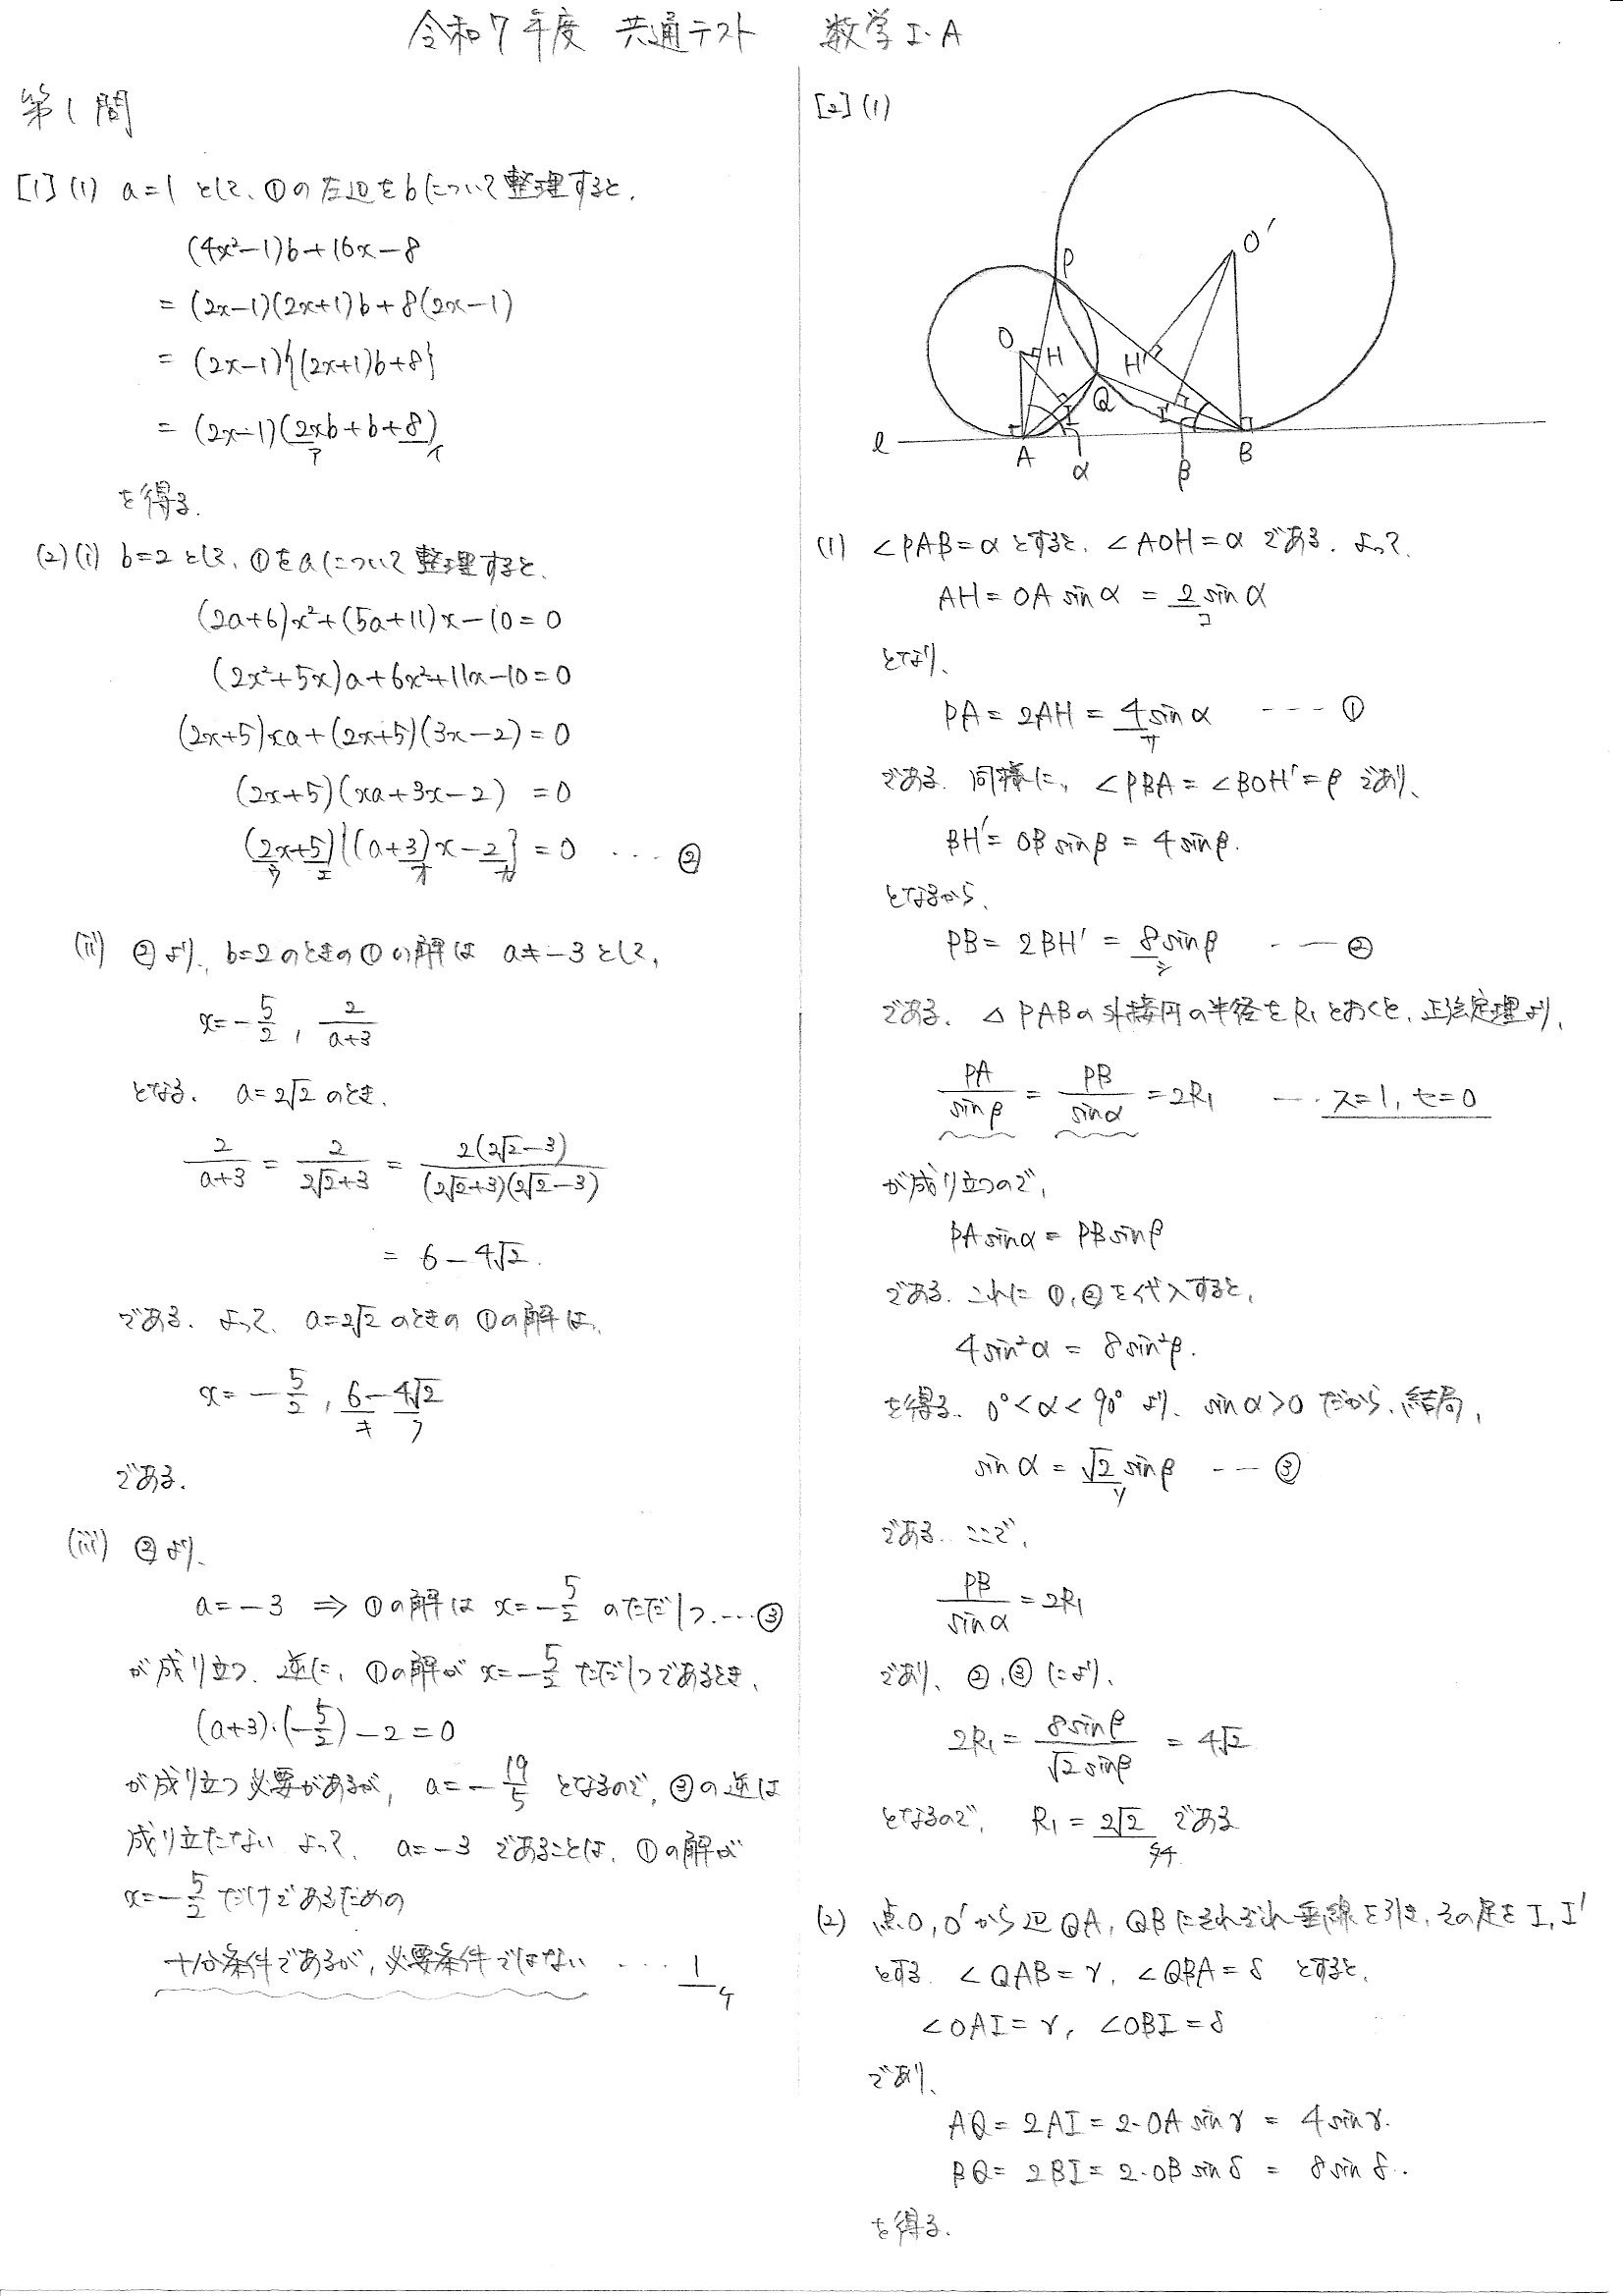 令和7年度 共通テスト 数学I・A
第1問
[1] (1) a=1 として、①の左辺をbについて整理すると,
(4x²-1)b+16x-8
= (2x-1)(2x+1)b+8(2x-1)
= (2x-1){(2x+1)b+8}
= (2x-1)(2xb+b+8)
ア イ
を得る.
(2)(i) b=2 として、①をaについて整理すると、
(2a+6)x²+(5a+11)x-10=0
(2x²+5x)a+6x²+11x-10=0
(2x+5)xa+(2x+5)(3x-2)=0
(2x+5)(xa+3x-2) =0
(2x+5){(a+3)x-2}=0 ・・・・ ②
ウ エ オ カ
(ii) ②より、b=2のときの①の解は a≠-3として,
x=-5/2, 2/(a+3)
となる. a=2√2 のとき.
2/(a+3) = 2/(2√2+3) = 2(2√2-3)/(2√2+3)(2√2-3)
= 6-4√2.
である. よって、a=2√2 のときの①の解は、
x=-5/2, 6-4√2
キ ク
である.
(iii) ②より、
a=-3 ⇒ ①の解は x=-5/2 のただ1つ.…③
が成り立つ. 逆に、①の解が x=-5/2 ただ1つであるとき、
(a+3)・(-5/2)-2=0
が成り立つ必要があるが, a=-19/5 となるので, ③の逆は
成り立たない よって、a=-3 であることは、①の解が
x=-5/2 だけであるための
十分条件であるが, 必要条件ではない ・・・ 1
ケ
[2] (1)
O'
P
O
H
H'
Q
I
I'
l
A
α
β
B
(1) ∠PAB=αとすると、∠AOH=α である. よって、
AH=OA sinα = 2 sinα
コ
となり、
PA=2AH=4sinα --- ①
サ
である. 同様に、∠PBA=∠BOH'=β であり、
BH'=OB sinβ = 4 sinβ.
となるから、
PB=2BH'=8sinβ --- ②
シ
である. △PABの外接円の半径をR₁とおくと、正弦定理より、
PA/sinβ = PB/sinα = 2R₁ --- ス=1, セ=0
が成り立つので,
PA sinα = PB sinβ
である. これに ①,②を代入すると、
4sin²α = 8sin²β.
を得る. 0°<α<90° より、sinα>0 だから、結局,
sinα = √2 sinβ --- ③
ソ
である. ここで,
PB/sinα = 2R₁
であり、②,③により、
2R₁ = 8sinβ/√2 sinβ = 4√2
となるので, R₁=2√2 である
タチ
(2) 点O,O'から辺QA, QBにそれぞれ垂線を引き、その足をI, I'
とする. ∠QAB=γ, ∠QBA=δ とすると、
∠OAI=γ, ∠OBI=δ
であり、
AQ=2AI=2・OA sinγ = 4 sinγ.
BQ=2BI=2・OB sinδ = 8 sinδ.
を得る.